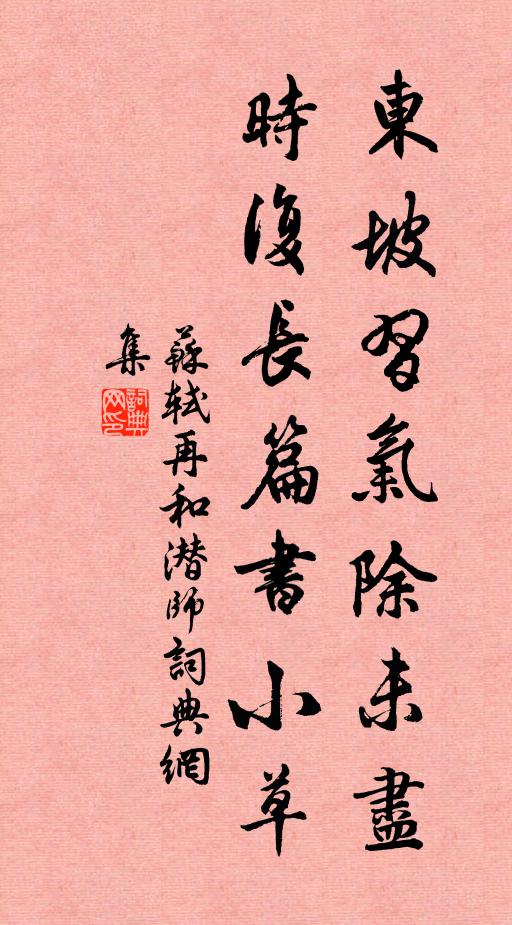 東坡習氣除未盡
時復長篇書小草
蘇軾再和潛師詞典網
集
詞典
网印